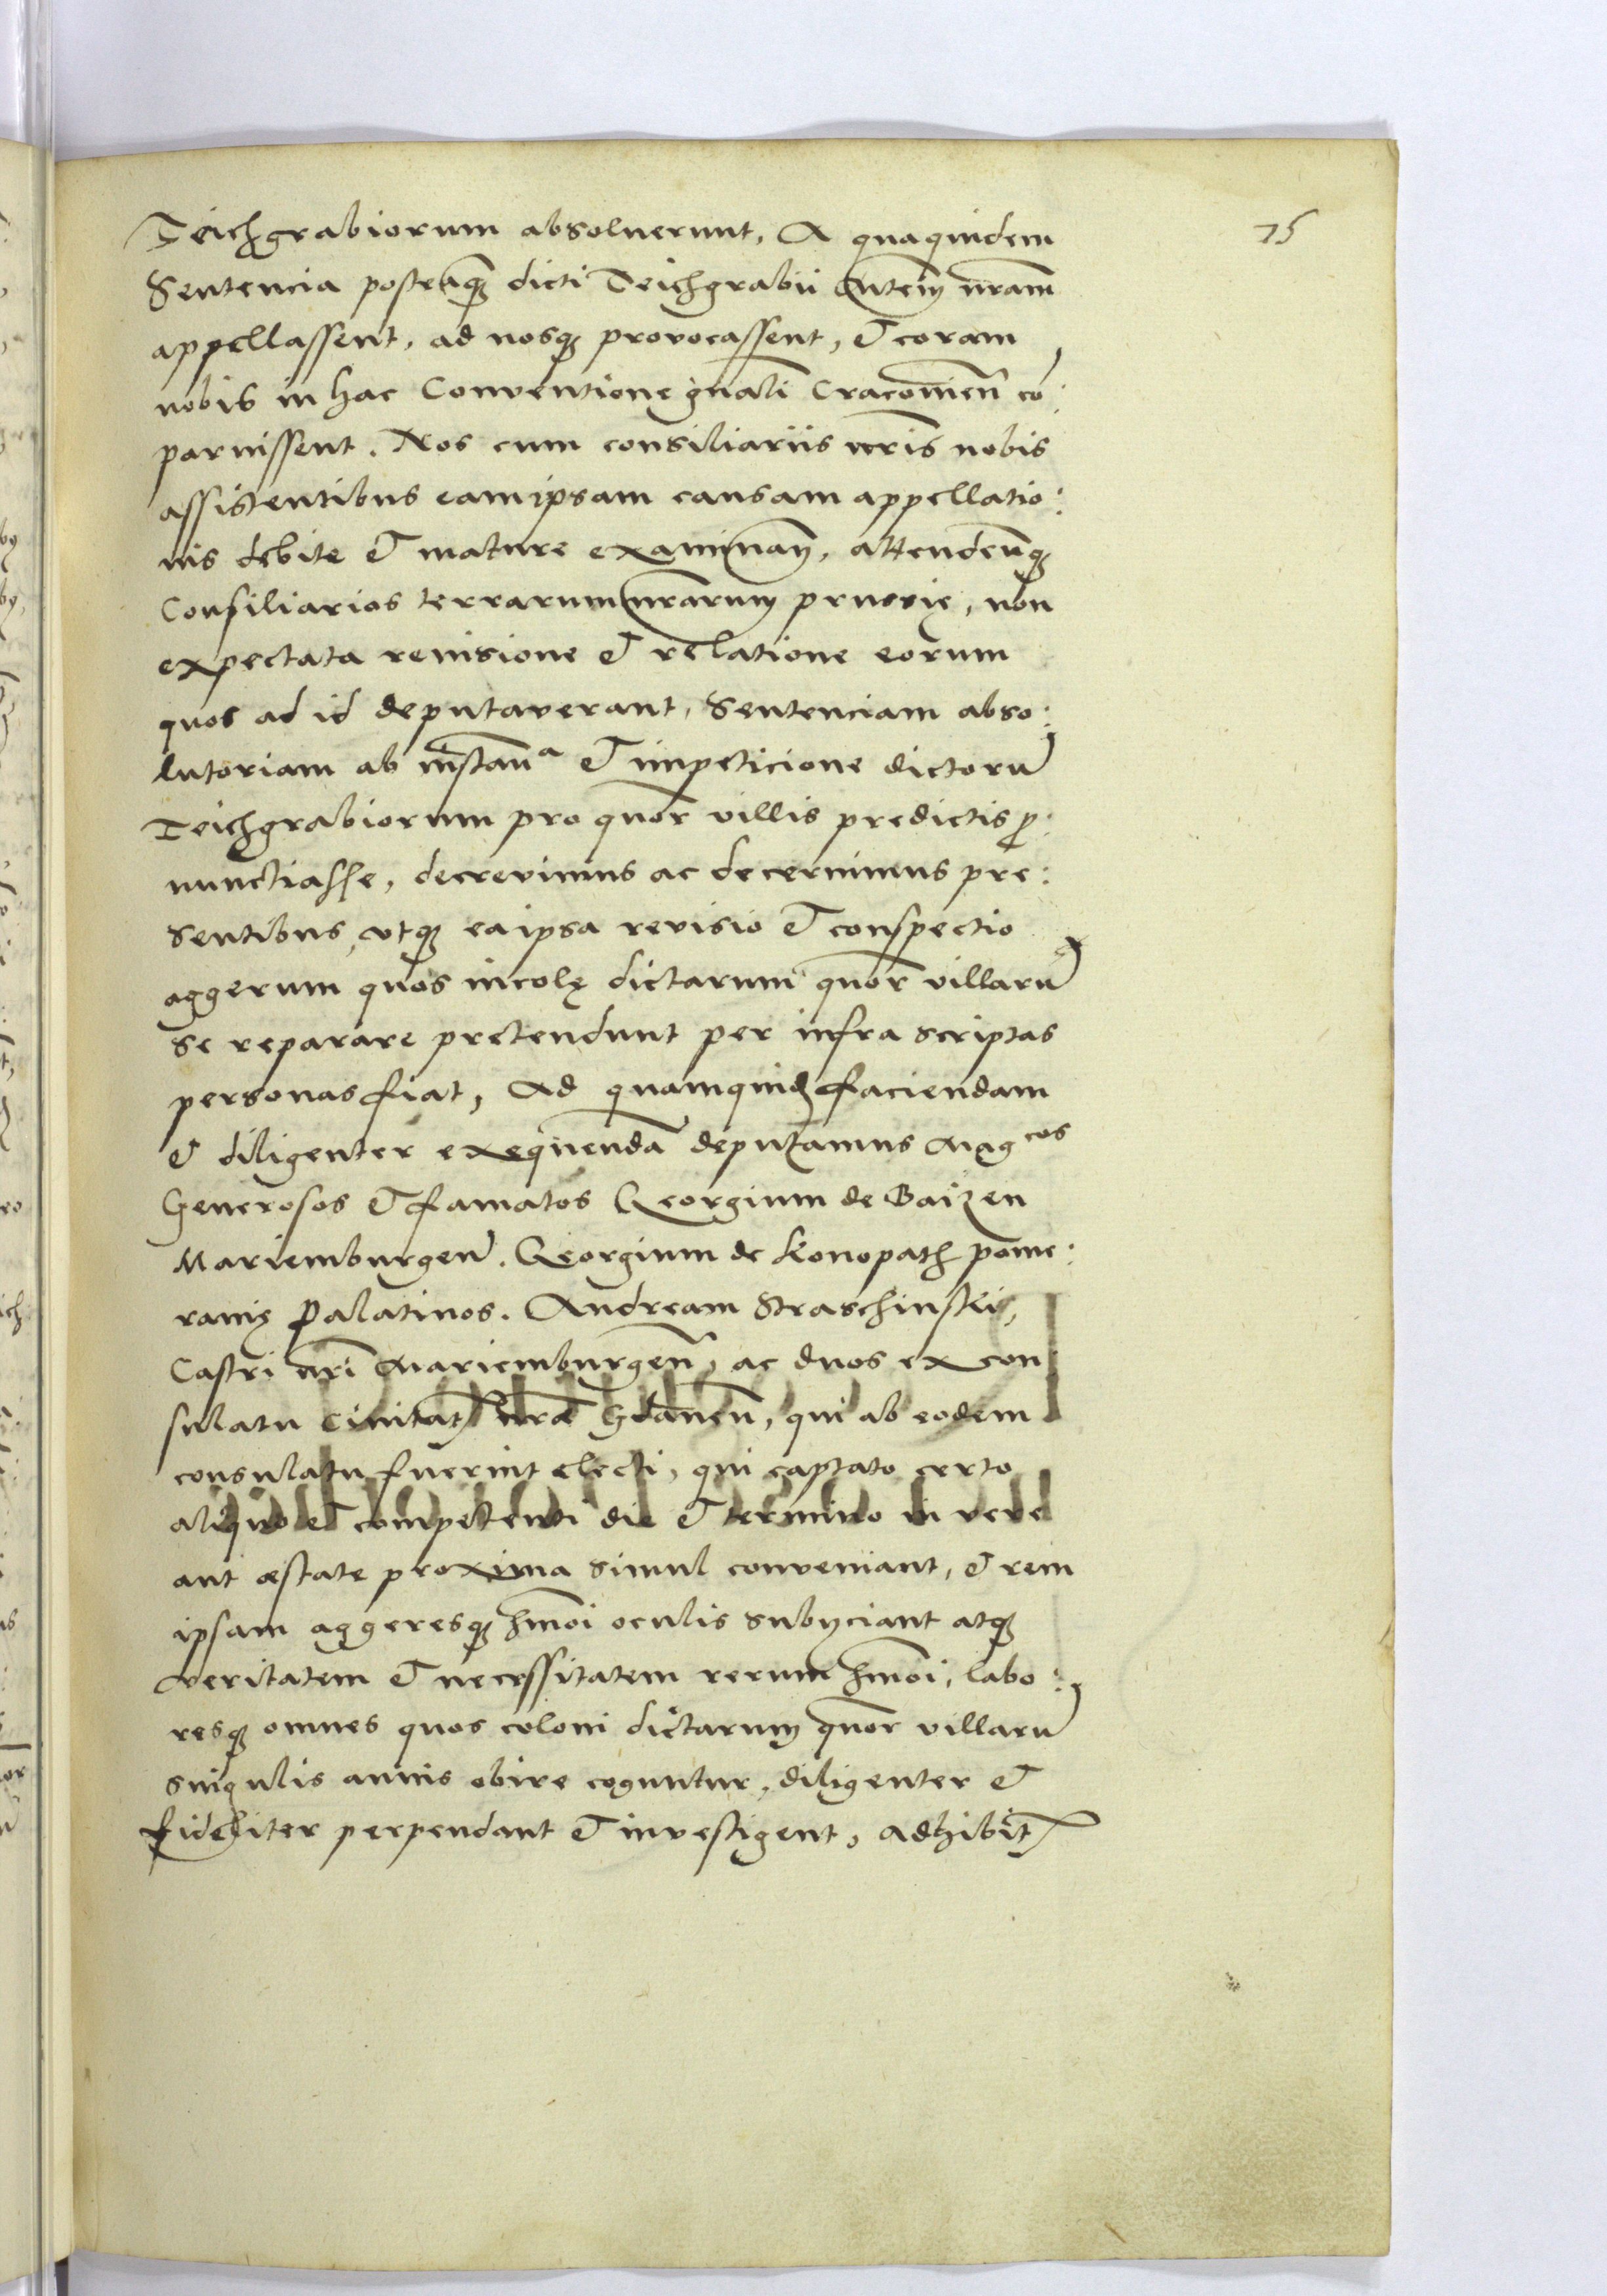 75
Teichgrabiorum absoluerunt, A quaquidem
Sentencia posteaq̄ꝫ dicti Teichgrabii nr̄am
appellassent, ad nosqꝫ provocassent, et coram
nobis in hac Conventione gn̄ali Cracovien̄ cō:
paruissent. Nos cum consiliariis nr̄is nobis
assistentibus eamipsam causam appellatio:
nis debite et mature examinan̄, attenden̄qꝫ
Consiliarios terrarum nr̄arum prussię, non
expectata reuisione et relatione eorum
quos ad id deputaverant, Sentenciam abso:
lutoriam ab instanᵃ et impeticione dictorū
Teichgrabiorum pro quor̄ villis predictis ꝓ:
nunctiasse, decrevimus ac decernimus pre:
sentibus, vtqꝫ eaipsa revisio et conspectio
aggerum quos incolę dictarum quor̄ villarū
se reparare pretendunt per infra scriptas
personas fiat, Ad quamquid faciendam
et diligenter exequendā deputamus Magᶜᵒˢ
Generosos et famatos Georgium de Baizen
Mariemburgen̄. Georgium de Konopath pome:
ranię Palatinos. Andream Straschinski,
Castri nr̄i Mariemburgen̄, ac duos ex con
sulatu Ciuitatꝭ nr̄æ Gdanen̄, qui ab eodem
consulatu fuerint electi, qui captato certo
aliquo et competenti die et termino in vere
aut æstate proxima simul conveniant, et rem
ipsam aggeresqꝫ hmōi oculis subijciant atqꝫ
veritatem et necessitatem rerum hmōi, labo:
resqꝫ omnes quos coloni dictarum quor̄ villarū
singulis annis obire coguntur, diligenter et
fideliter perpendant et investigent, adhibitꝭ